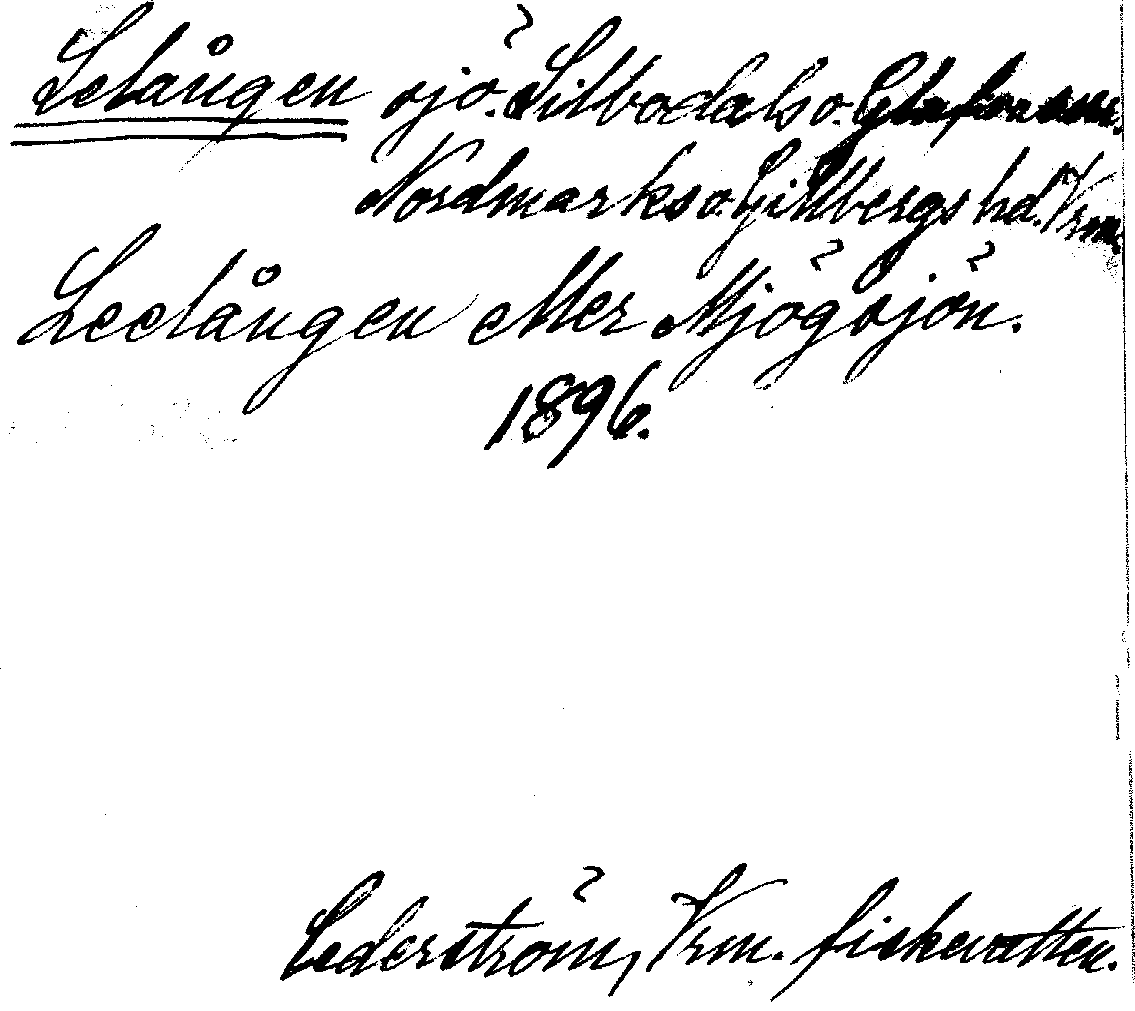 Lelången sjö. Silbodals o. Glafva snr.
Nordmarks o. Gillbergs hd. Vrm.
Leelången eller Mjögsjön.
1896.
Cederström, Vrm. fiskevatten.